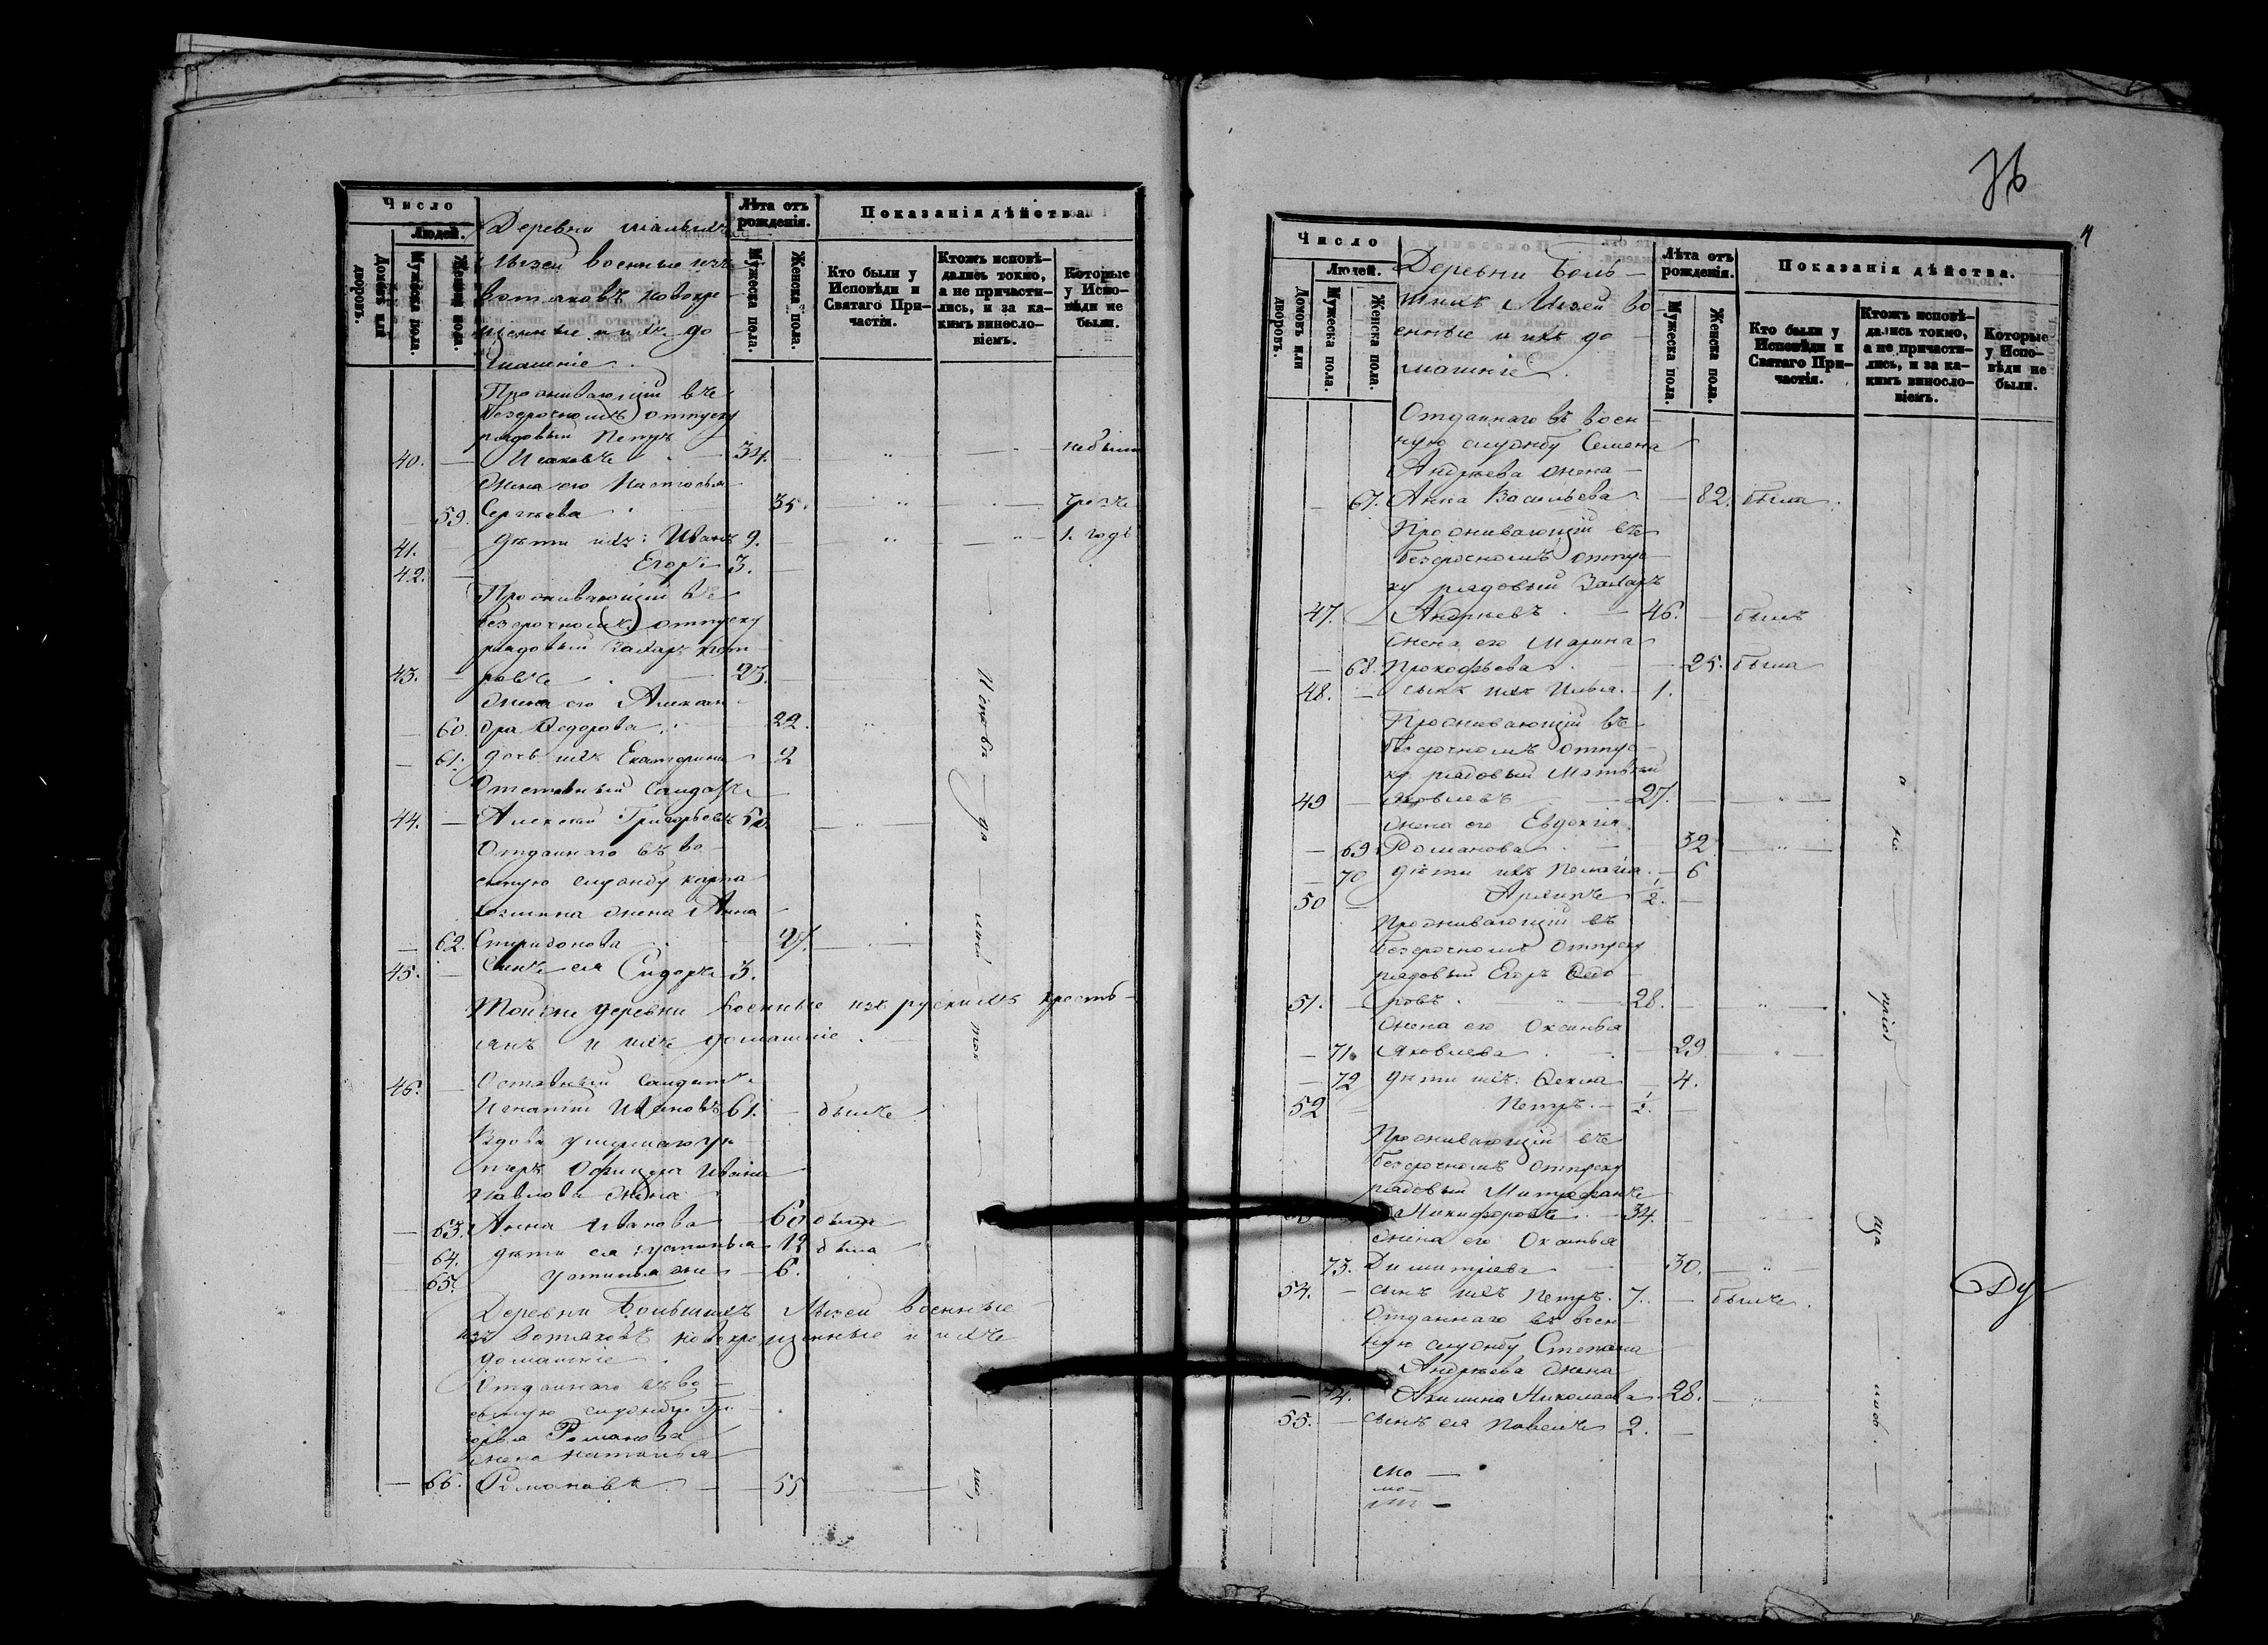 Число
Людей.
Домовъ или дворовъ.
Мужеска пола.
Женска пола.
Деревни малыхъ
Лызей военные изъ
вотяковъ новокре-
щенные и ихъ до
машніе.
Лѣта отъ рожденія.
Мужеска пола.
Женска пола.
Показанія дѣйства.
Кто были у Исповѣди и Святаго При-частія.
Ктожъ исповѣ-дались токмо, а не причасти-лись, и за ка-кимъ винесло-віемъ.
Которые у Испо-вѣди не были.
Проживающій въ
безсрочномъ отпуску
рядовый Петръ
40. — Исаковъ — 34. — небыли
жена его Настасья
— 59. Сергѣева 35. чрезъ
41. — дѣти ихъ: Иванъ 9. — 1. годъ
42. — Егоръ 3. —
Проживающій въ
безсрочномъ отпуску
рядовый Захаръ
43. — 23. —
жена его Алексан-
— 60. дра Ѳедорова. 22.
— 61. дочь ихъ Екатерина 2
Отставный Солдатъ
44. — Алексѣй Григорьевъ 50.
Отданнаго въ во-
енную службу
жена Анна
— 62. Спиридонова 27.
45. — сынъ ея Сидоръ 3.
Тойже деревни военные изъ рускихъ кресть-
янъ и ихъ домашніе.
46. — Оставный Солдатъ
Игнатій Ивановъ 61. — былъ
Вдова умершаго ун-
теръ Офицера Ивана
Павлова жена
— 63. Анна Иванова — 60 была
— 64. дѣти ея: Устинья 12 была
— 65. Устинья же — 6.
Деревни Большихъ Лызей военные
изъ Вотяковъ новокрещенные и ихъ
домашніе.
Отданнаго въ во-
енную службу Гри-
горья Романова
жена Наталья
— 66. Романова — 55
36
4
Число
Людей.
Домовъ или дворовъ.
Мужеска пола.
Женска пола.
Деревни Боль-
шихъ Лызей во-
енные и ихъ до
машніе.
Лѣта отъ рожденія.
Мужеска пола.
Женска пола.
Показанія дѣйства.
Кто были у Исповѣди и Святаго При-частія.
Ктожъ исповѣ-дались токмо, а не причасти-лись, и за ка-кимъ винесло-віемъ.
Которые у Испо-вѣди не были.
Отданнаго въ воен-
ную службу Семена
Андреева жена
— 67. Анна Васильева — 82. была.
Проживающій въ
безсрочномъ отпус-
ку рядовый Захаръ
47. — Андреевъ — 46. — былъ
жена его Марина
— 68. Прокофьева — 25. была
48. — сынъ ихъ Илья. — 1.
Проживающій въ
безсрочномъ отпус-
ку рядовый Матвей
49 — Яковлевъ — 27. —
жена его Евдокія
— 69 Романова 32
— 70 дѣти ихъ Пелагія — 6
50 — Архипъ ½. —
Проживающій въ
безсрочномъ отпуску
рядовый Егоръ Ѳедо
51. — ровъ. — 28. —
жена его Оксинья
— 71. Яковлева 29
— 72 дѣти ихъ: Ѳекла — 4.
52 — Петръ. — ½. —
Проживающій въ
безсрочномъ отпуску
рядовый Митрофанъ
Никифоровъ — 34. —
жена его Оксинья
73. Димитріева 30.
54. — сынъ ихъ Петръ. 7. — былъ.
Отданнаго въ воен-
ную службу Степана
Андреева жена
— 74. Акилина Николаева 28.
55. — сынъ ея Павелъ 2. —